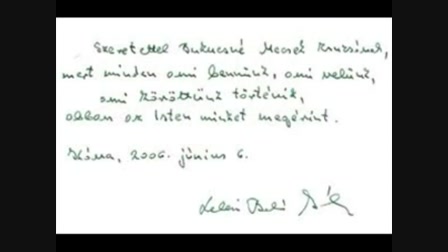 Szeretettel Bukucsné Mecsé Krisztának,
mert minden ami bennünk, ami velünk,
ami köröttünk történik,
abban az Isten minket megérint.
2006. június 6.